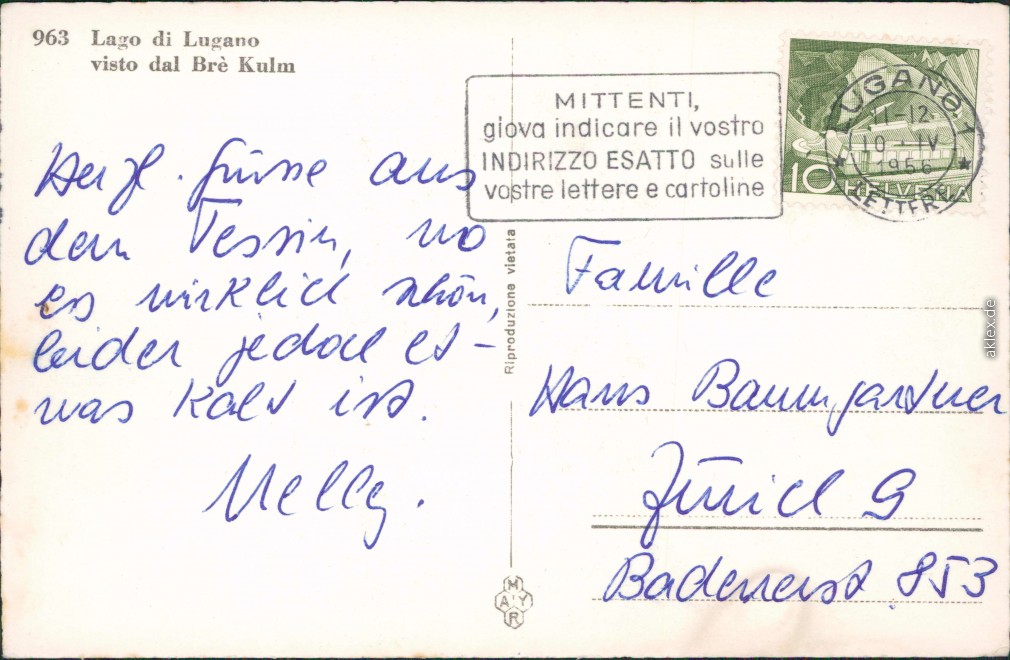 963 Lago di Lugano
visto dal Brè Kulm
MITTENTI,
giova indicare il vostro
INDIRIZZO ESATTO sulle
vostre lettere e cartoline
LUGANO 1
11-12
10 · IV
1956
LETTERE
10 HELVETIA
Herzl. Grüsse aus
dem Tessin, wo
es wirklich schön,
leider jedoch et-
was kalt ist.
Nelly.
Riproduzione vietata
Familie
Hans Baumgartner
Zürich 9
Badenerst. 853
MAYR
aklex.de